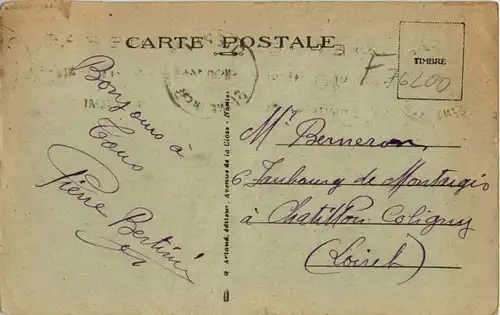 CARTE POSTALE
TIMBRE
F 76200
Bonjours à
Tous
Pierre
G. Artaud, éditeur, Avenue de la Close - Nantes
Mr Berneron
6 Faubourg de Montargis
à Chatillon Coligny
(Loiret)